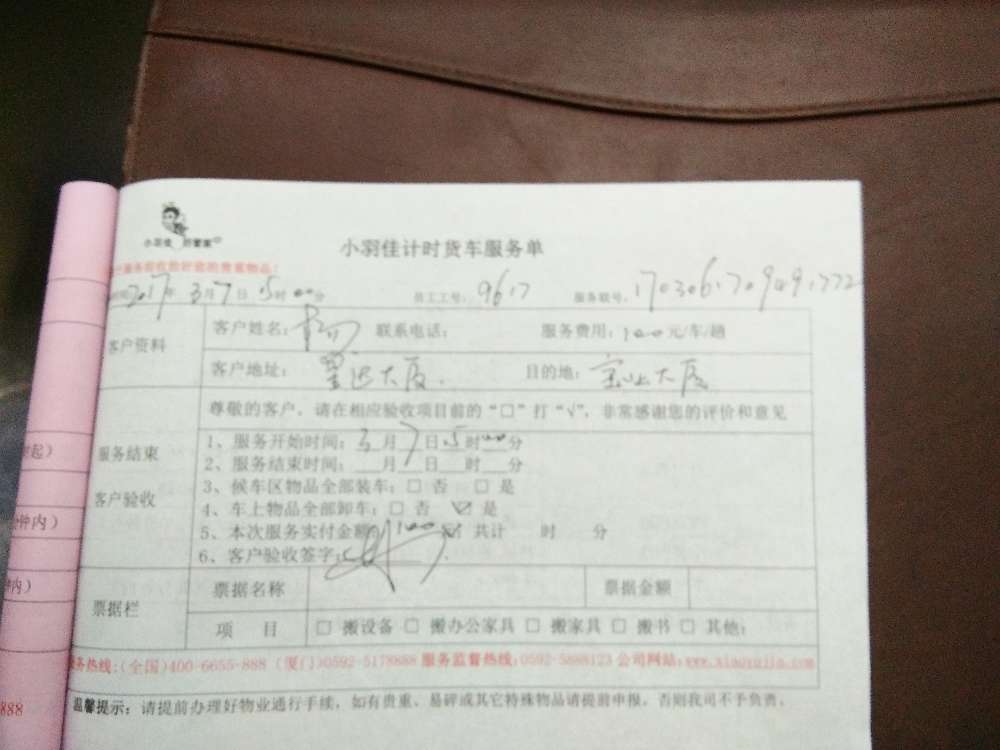 小羽佳 好管家
小羽佳计时货车服务单
2017年 3月7日 15时00分 员工工号: 9617 服务联号: 1703061709491772
客户资料
客户姓名: 联系电话: 服务费用: 100元/车/趟
客户地址: 大厦 目的地: 宝业大厦
尊敬的客户,请在相应验收项目前的“□”打“√”,非常感谢您的评价和意见
服务结束
客户验收
1、服务开始时间: 3月7日15时00分
2、服务结束时间: 月 日 时 分
3、候车区物品全部装车: □ 否 □ 是
4、车上物品全部卸车: □ 否 ☑ 是
5、本次服务实付金额: 100 共计 时 分
6、客户验收签字:
票据栏
票据名称 票据金额
项 目 □ 搬设备 □ 搬办公家具 □ 搬家具 □ 搬书 □ 其他:
务热线:(全国)400-6655-888 (厦门)0592-5178888 服务监督热线:0592-5888123 公司网站:www.xiaoyujia.com
温馨提示: 请提前办理好物业通行手续, 如有贵重、易碎或其它特殊物品请提前申报, 否则我司不予负责。
起)
钟内)
钟内)
888